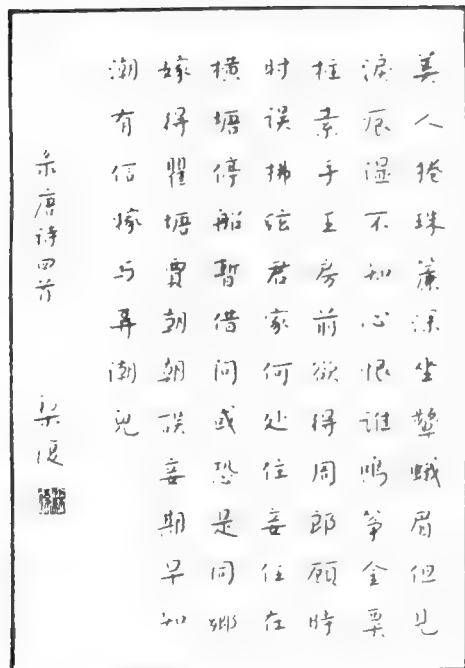 美人捲珠簾深坐颦蛾眉但见
淚痕湿不知心恨誰鳴筝金粟
柱素手玉房前欲得周郎顾時
时误拂弦君家何处住妾住在
横塘停船暂借问或恐是同鄉
嫁得瞿塘賈朝朝误妾期早知
潮有信嫁与弄潮兒
录唐诗四首 梁